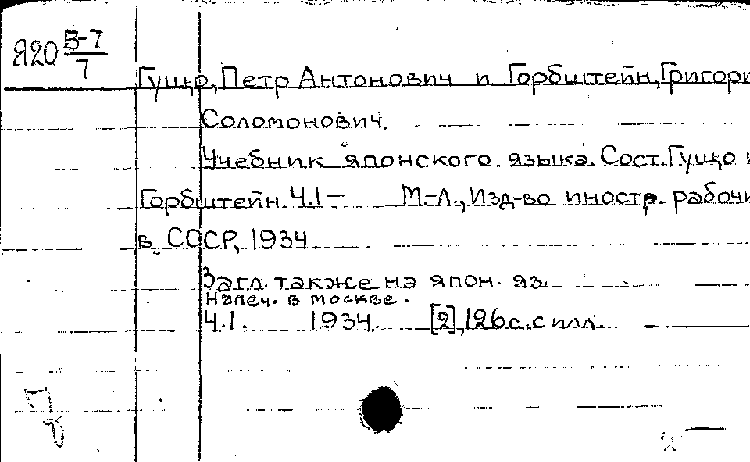 Я20 В-7
7
Гуцко, Петр Антонович и Горбштейн, Григори
Соломонович.
Учебник японского языка. Сост. Гуцко и
Горбштейн. Ч.1 – М-Л., Изд-во иностр. рабочи
в СССР, 1934
Загл. также на япон. яз.
Напеч. в Москве.
Ч.1. 1934 [2], 126 с. с илл.